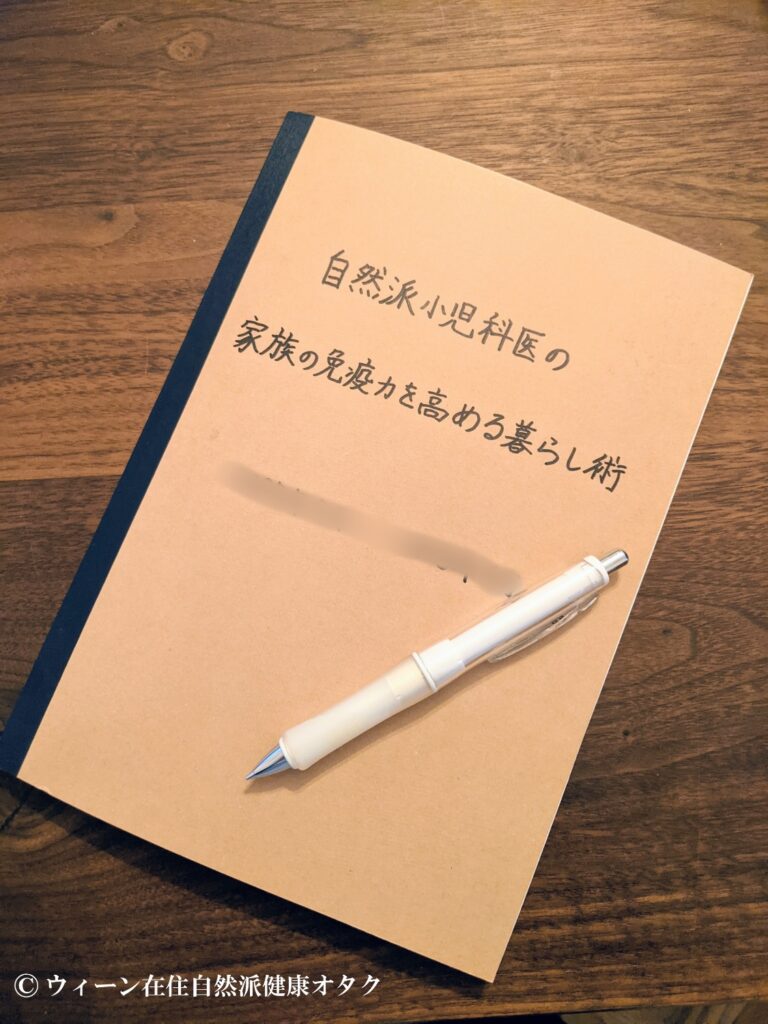 自然派小児科医の
家族の免疫力を高める暮らし術
© ウィーン在住自然派健康オタク